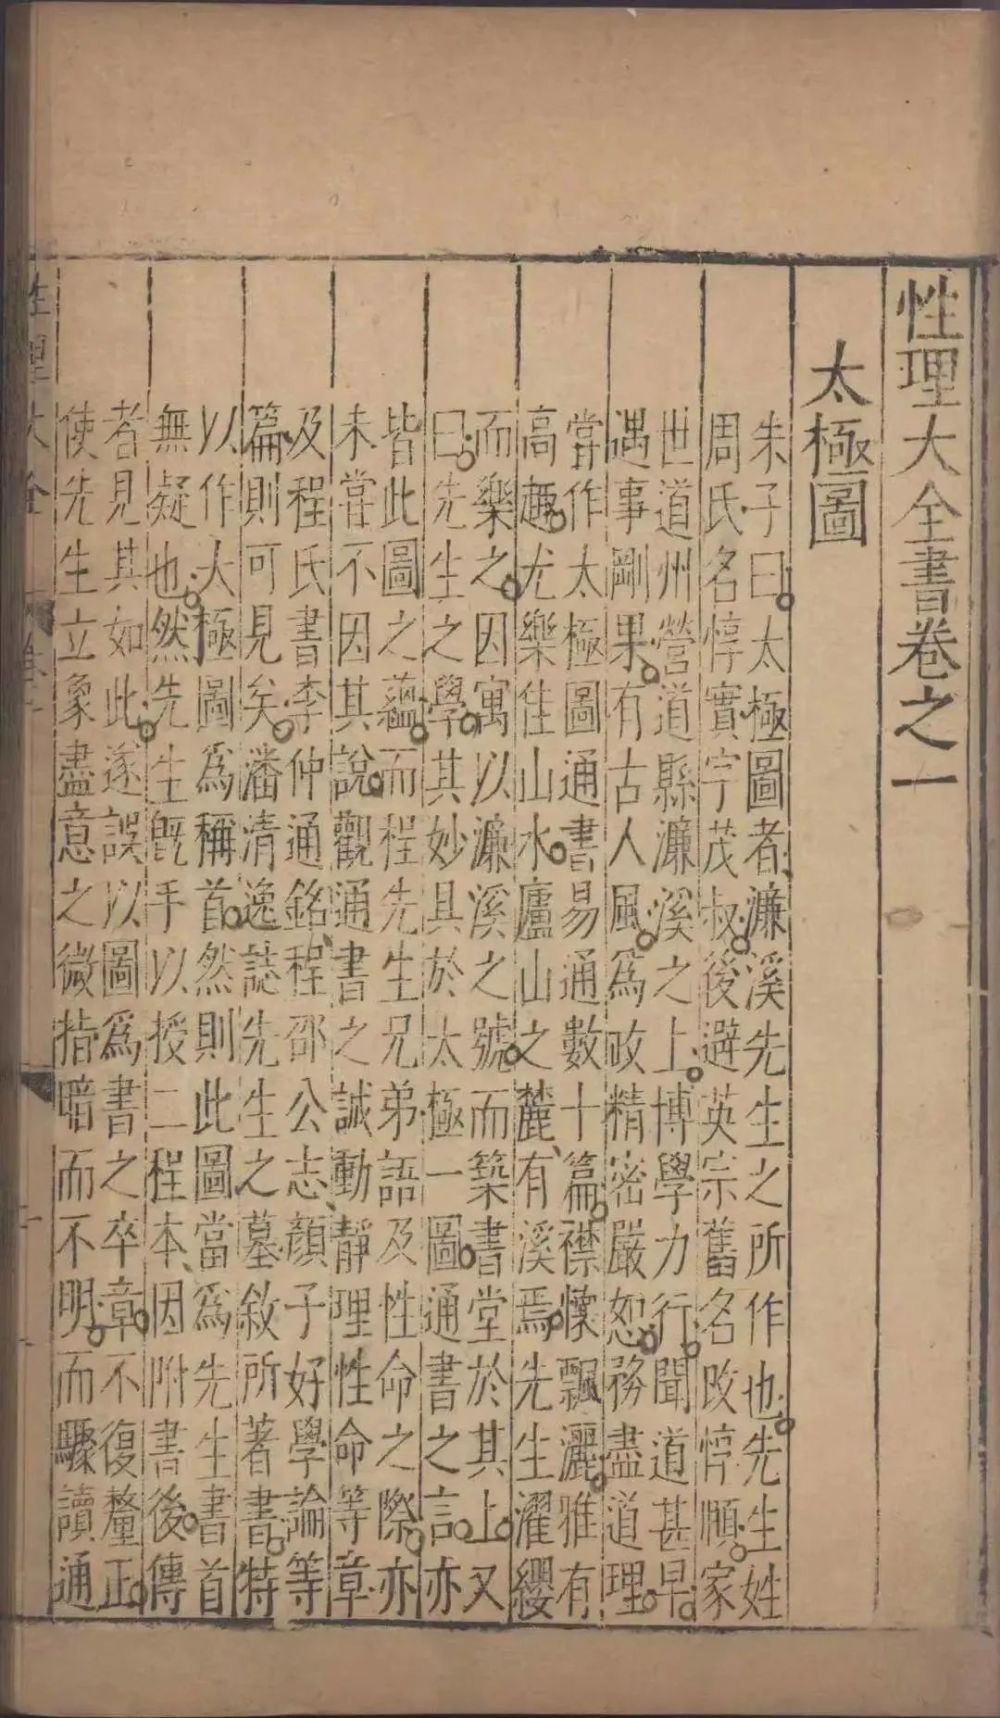 性理大全書卷之一
太極圖
朱子曰太極圖者濂溪先生之所作也先生姓
周氏名惇實字茂叔後避英宗舊名改惇順家
世道州營道縣濂溪之上博學力行聞道甚早
遇事剛果有古人風爲政精密嚴恕務盡道理
嘗作太極圖通書易通數十篇襟懷飄灑雅有
高趣尤樂佳山水廬山之麓有溪焉先生濯纓
而樂之因寓以濂溪之號而築書堂於其上又
曰先生之學其妙具於太極一圖通書之言亦
皆此圖之蘊而程先生兄弟語及性命之際亦
未嘗不因其說觀通書之誠動靜理性命等章
及程氏書李仲通銘程邵公志顏子好學論等
篇則可見矣潘清逸誌先生之墓敘所著書特
以作大極圖爲稱首然則此圖當爲先生書首
無疑也然先生旣手以授二程本因附書後傳
者見其如此遂誤以圖爲書之卒章不復釐正
使先生立象盡意之微指暗而不明而驟讀通